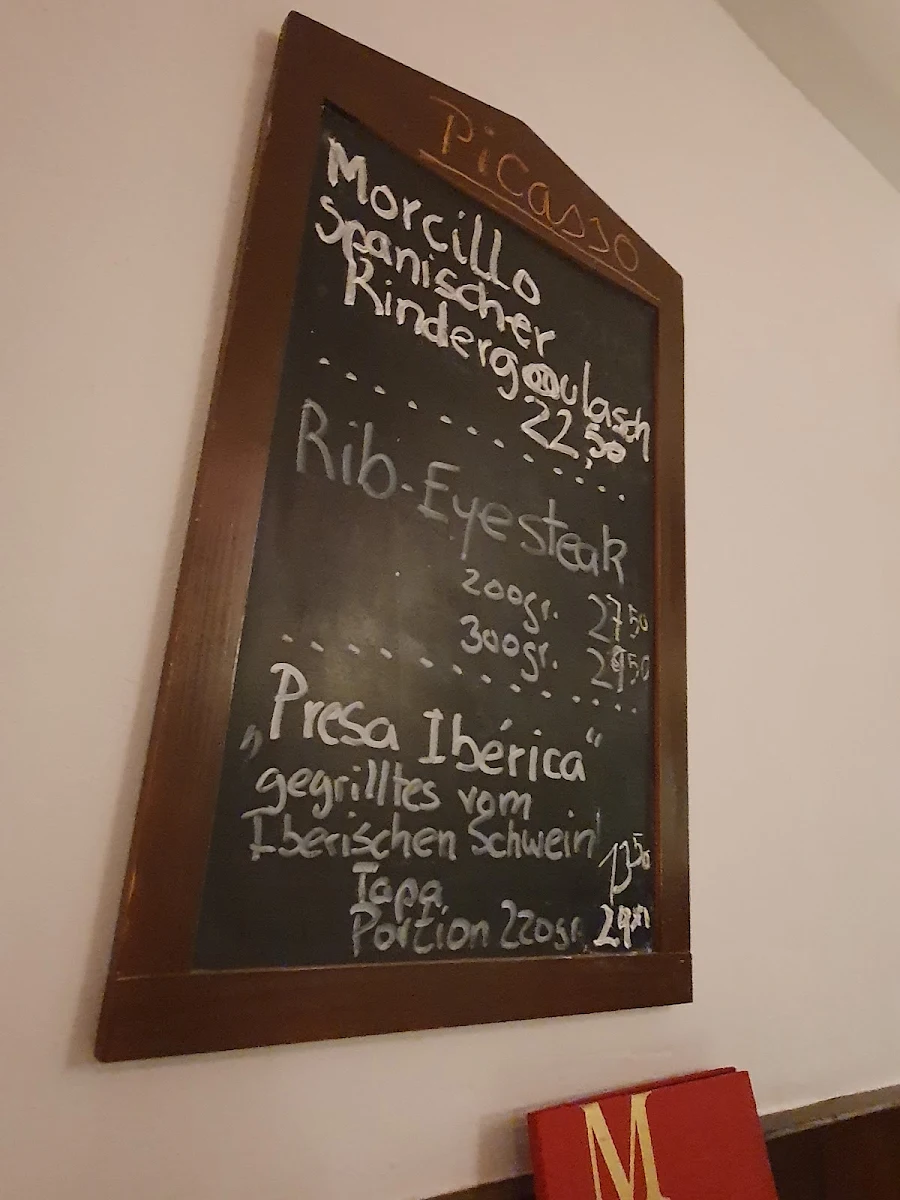 Picasso
Morcillo
Spanischer
Rindergoulasch
22,50
Rib-Eyesteak
200gr. 27 50
300gr. 29 50
„Presa Ibérica“
gegrilltes vom
Iberischen Schwein
13 50
Tapa
Portion 220gr.
M